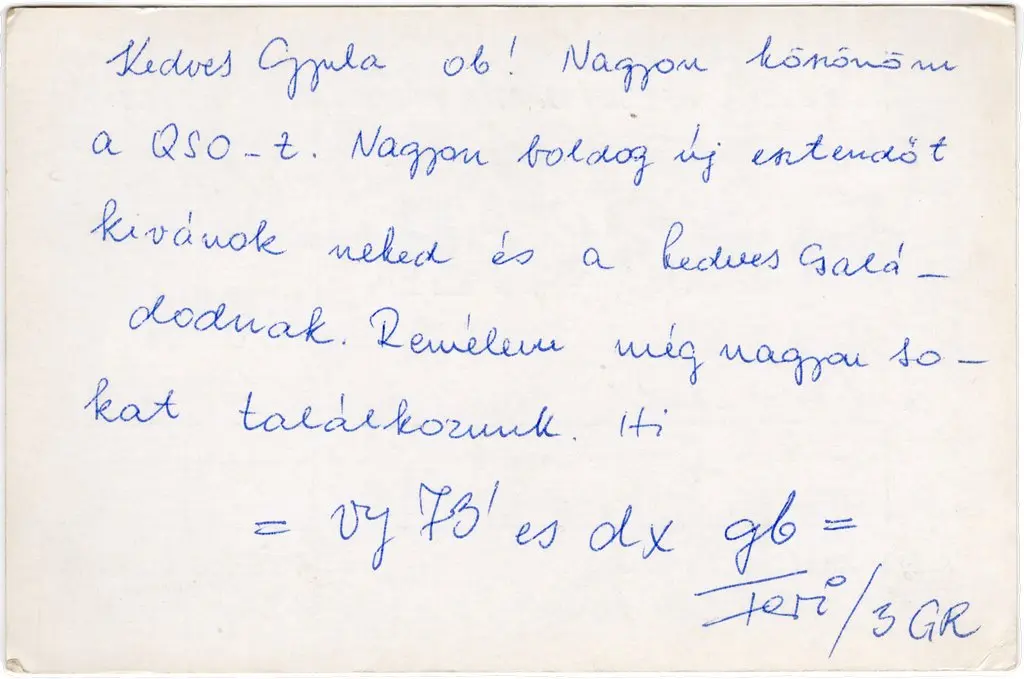 Kedves Gyula ob! Nagyon köszönöm
a QSO-t. Nagyon boldog új esztendőt
kivánok neked és a kedves Csalá-
dodnak. Remélem még nagyon so-
kat találkozunk. Hi
= vy 73' es dx gb =
Feri/3GR